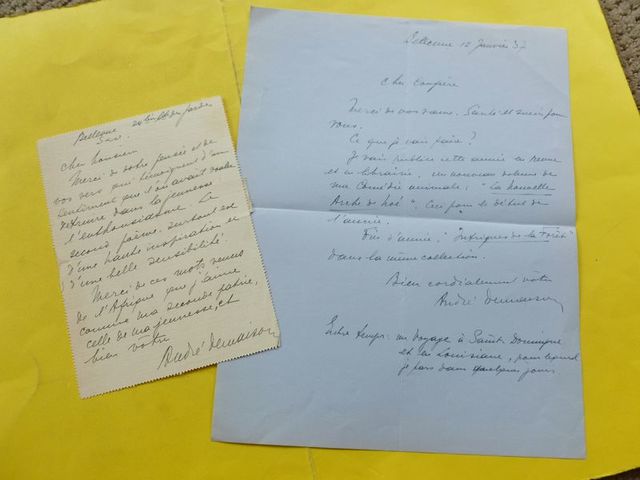 Bellevue 24 bis Av du
S. & O.
Cher Monsieur
Merci de votre pensée et de
vos vers qui témoignent d'un
sentiment que l'on avait voulu
détruire dans la jeunesse
l'enthousiasme. Le
second poème surtout est
d'une haute inspiration et
d'une belle sensibilité.
Merci de ces mots venus
de l'Afrique que j'aime
comme ma seconde patrie,
celle de ma jeunesse, et
bien vôtre
André Demaison
Bellevue 12 Janvier 37
Cher confrère
Merci de vos vœux. Santé et succès pour
vous.
Ce que je vais faire?
Je vais publier cette année en revue
et en librairie, un nouveau volume de
ma Comédie animale: "La nouvelle
Arche de Noé". Ceci pour le début de
l'année.
Fin d'année, "Intrigues de la Forêt"
dans la même collection.
Bien cordialement vôtre
André Demaison
Entre temps: un voyage à Saint Domingue
et en Louisiane, pour lequel
je pars dans quelques jours